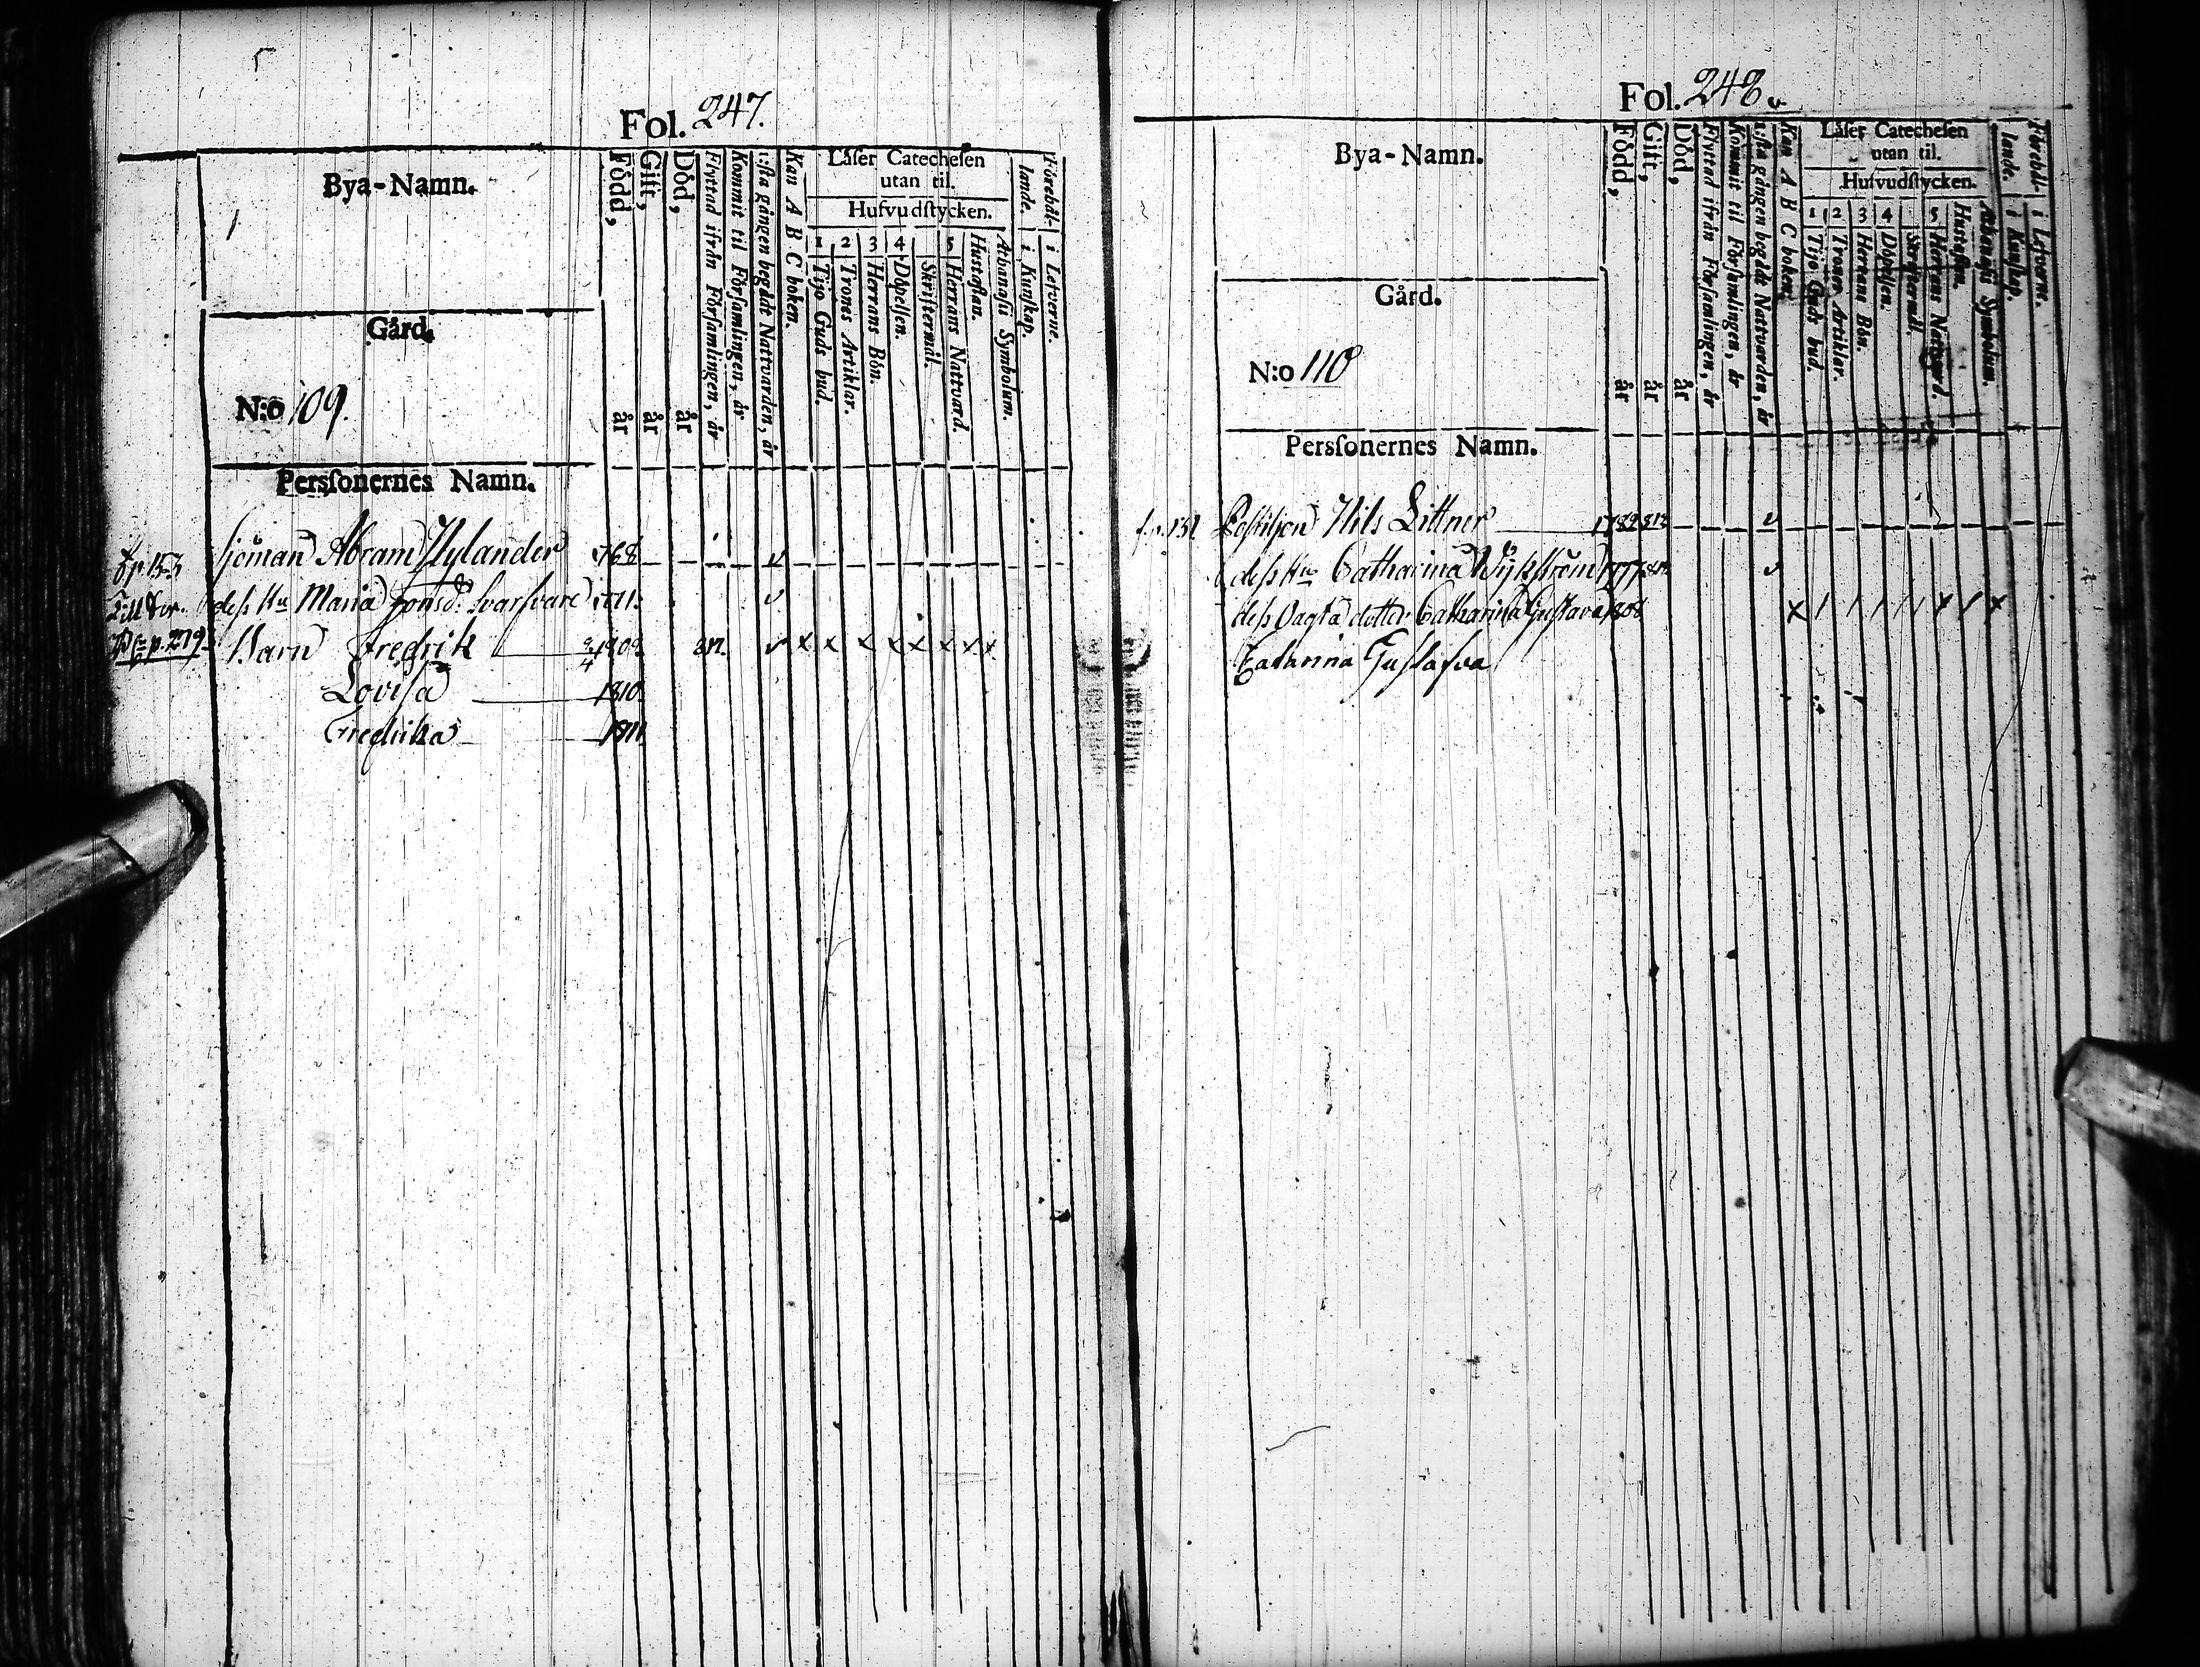 Fol. 247.
Bya-Namn.
Gård.
N:o 109.
Persſonernes Namn.
Född, år
Gift, år
Död, år
Flyttad ifrån Förſamlingen, år
Kommit til Förſamlingen, år
1:ſta gången begådt Nattvarden, år
Kan A B C boken.
Läſer Catecheſen
utan til.
Hufvudſtycken.
1 Tijo Guds bud.
2 Trones Artiklar.
3 Herrans Bön.
4 Döpelſen.
Skriftermål.
5 Herrans Nattvard.
Huſtaflan.
Athanaſii Symbolum.
Förehål-
lande.
i Kunſkap.
i Lefverne.
f.p. 153 Sjöman Abram Nylander 1768 v
deſs Hu Maria v
p. 279 Barn Fredrik v x x x x x x x x
Lovisa 1810.
Fredrika 1811.
Fol. 248.
Bya-Namn.
Gård.
N:o 110
Persſonernes Namn.
Född, år
Gift, år
Död, år
Flyttad ifrån Förſamlingen, år
Kommit til Förſamlingen, år
1:ſta gången begådt Nattvarden, år
Kan A B C boken.
Läſer Catecheſen
utan til.
Hufvudſtycken.
1 Tijo Guds bud.
2 Trones Artiklar.
3 Herrans Bön.
4 Döpelſen.
Skriftermål.
5 Herrans Nattvard.
Huſtaflan.
Athanaſii Symbolum.
Förehål-
lande.
i Kunſkap.
i Lefverne.
Poſtiljon Nils Littner v
deſs Hu Catharina Wykſtröm v
deſs Oägta dotter Catharina Guſtava x / / / / / x / x
Catarina Guſtafva